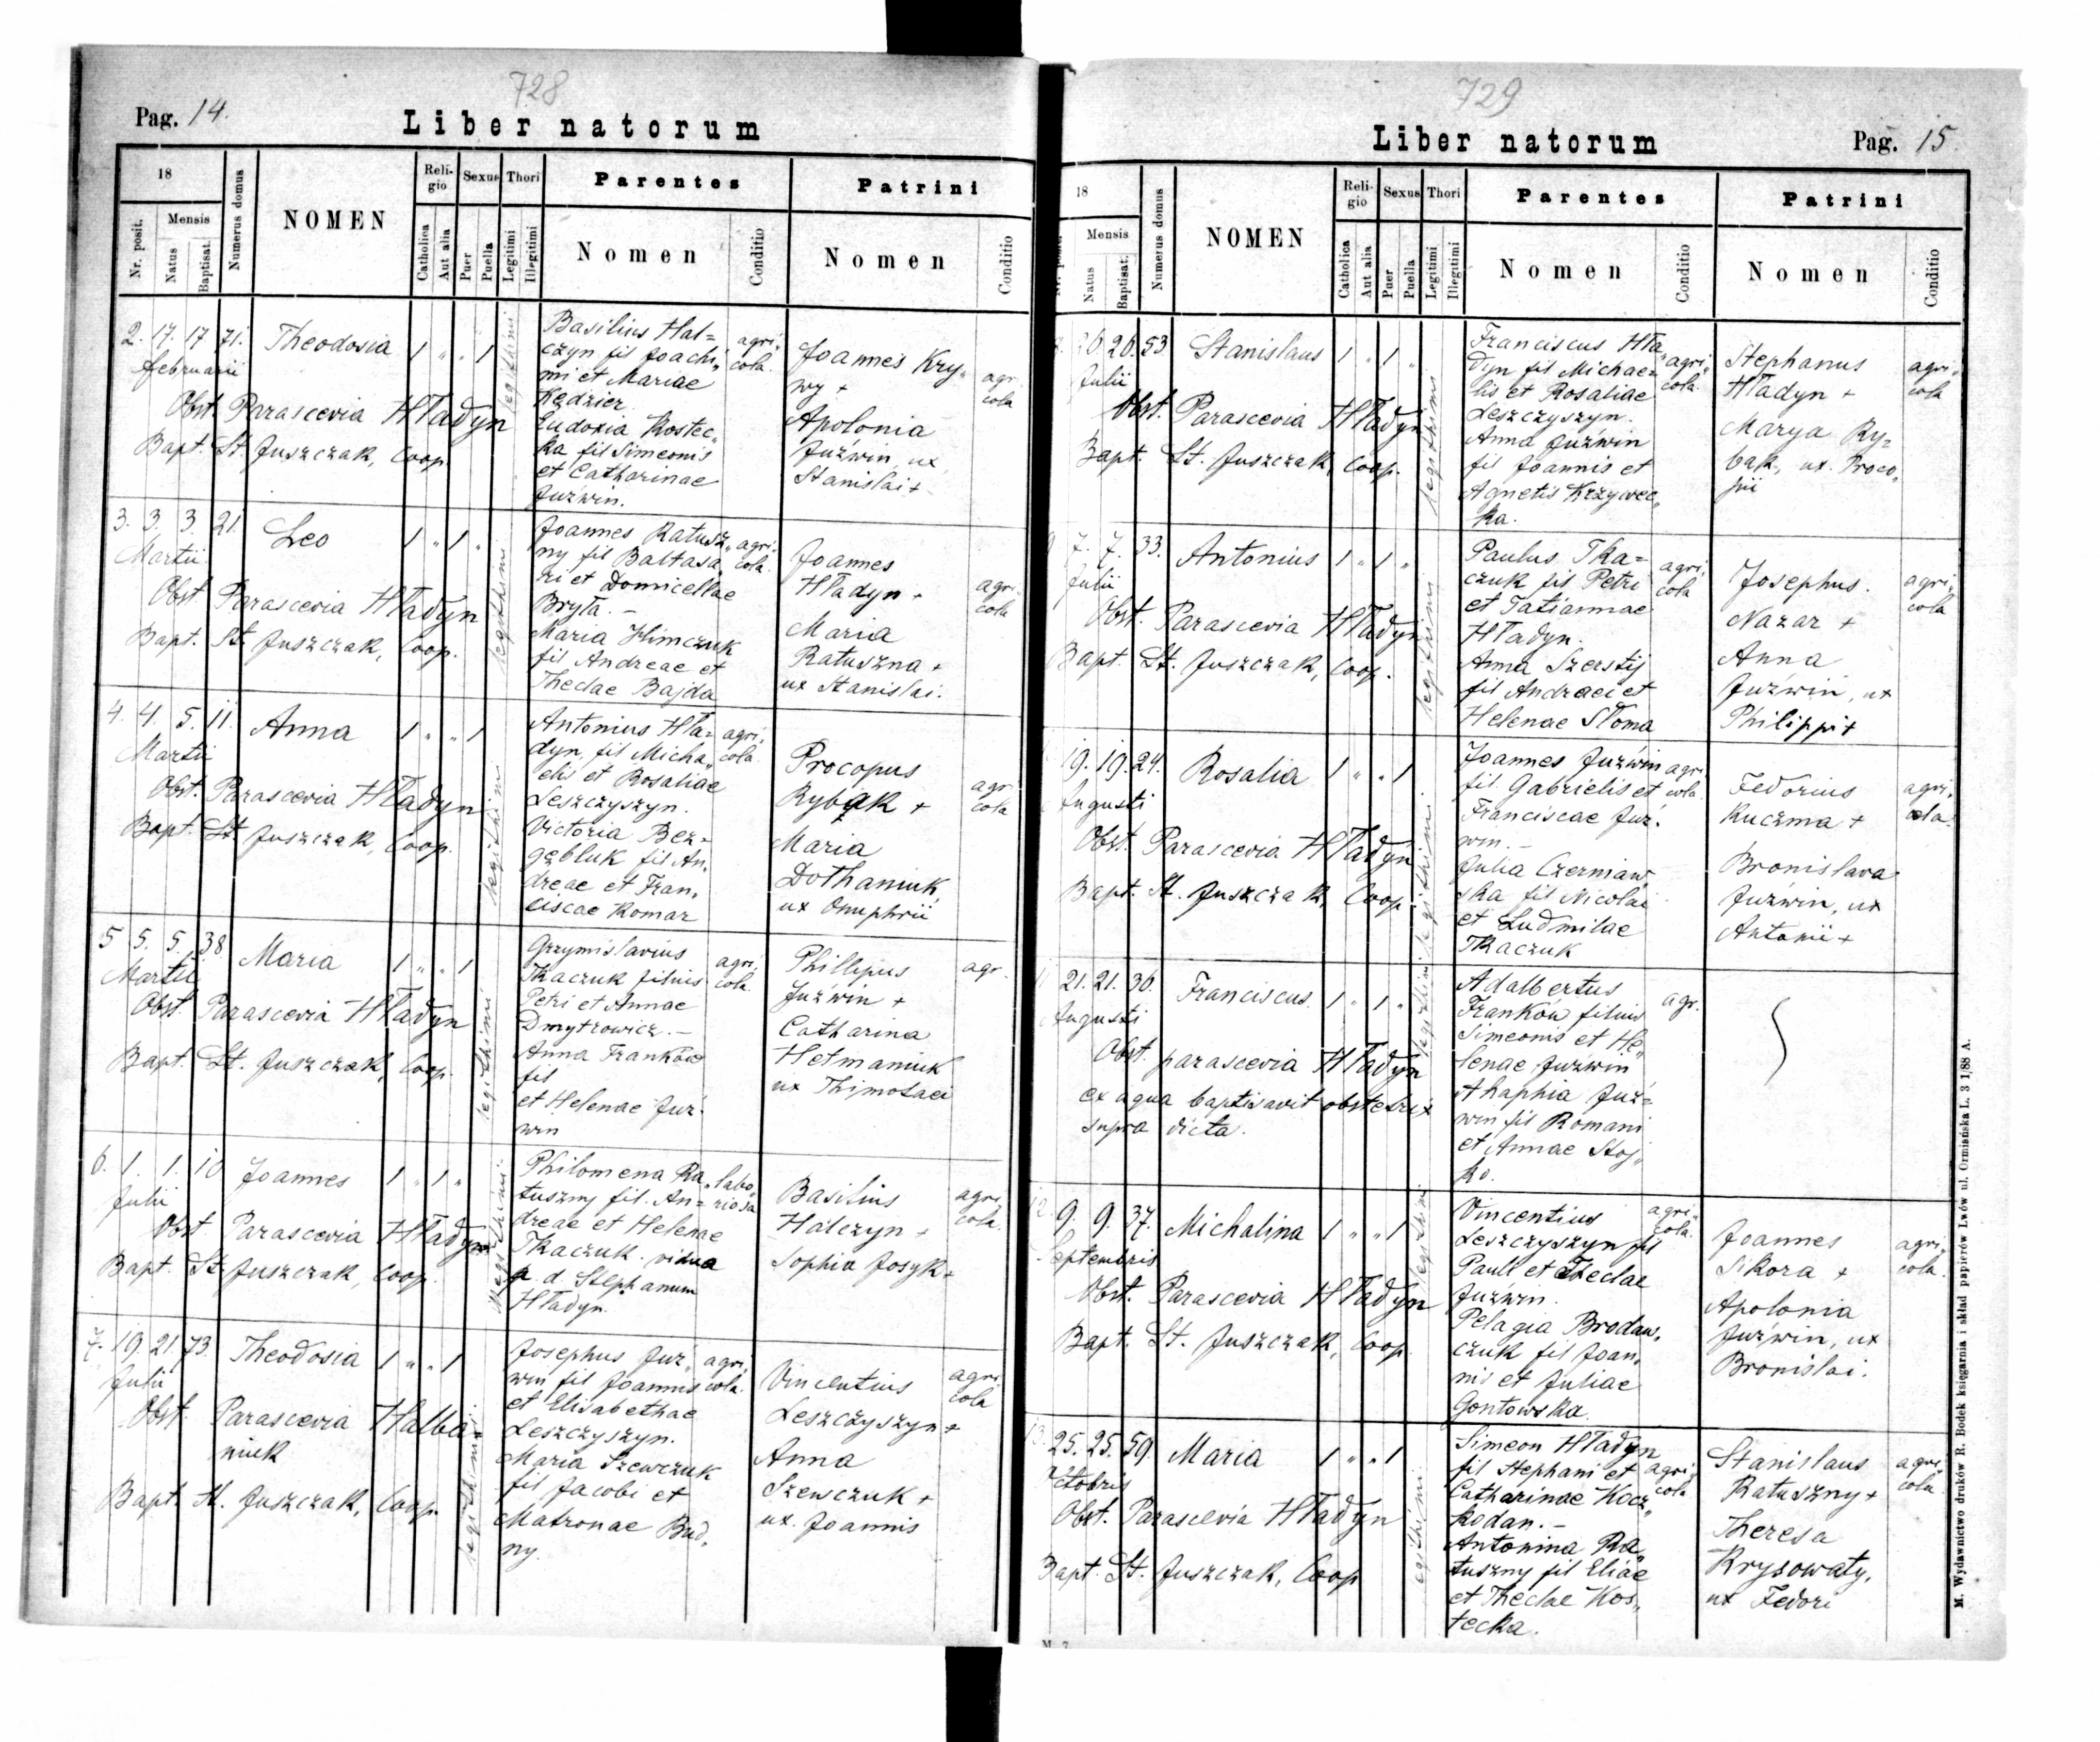 728
Pag. 14.
Liber natorum
18
Nr. posit.
Mensis
Natus
Baptisat.
Numerus domus
NOMEN
Religio
Catholica
Aut alia
Sexus
Puer
Puella
Thori
Legitimi
Illegitimi
Parentes
Nomen
Conditio
Patrini
Nomen
Conditio
2. 17. 17 71. Theodosia 1 " " 1
februarii
Obst. Parascevia Hładyn
Bapt. St. Juszczak, Coop.
legithimi
Basilius Hal=
czyn fil Joachi„
mi et Mariae
Kędzier
Eudoxia Kostec„
ka fil Simeonis
et Catharinae
Juźwin.
agri„
cola.
Joannes Kry„
wy +
Apolonia
Juźwin, ux
Stanislai +
agr
cola
3. 3. 3. 21. Leo 1 " 1 "
Martii
Obst Parascevia Hładyn
Bapt. St. Juszczak, Coop.
legithimi
Joannes Ratusz„
ny fil Baltasa„
ri et Domicellae
Bryła. –
Maria Klimczuk
fil Andreae et
Theclae Bajda
agri„
cola.
Joannes
Hładyn +
Maria
Ratuszna +
ux Stanislai.
agri„
cola
4. 4. 5. 11. Anna 1 " " 1
Martii
Obst. Parascevia Hładyn
Bapt. St Juszczak, Coop.
legithimi
Antonius Hła=
dyn, fil Micha„
elis et Rosaliae
Leszczyszyn.
Victoria Bez=
gębluk fil An„
dreae et Fran„
ciscae Komar
agri„
cola
Procopus
Rybak +
Maria
Dołhaniuk
ux Onuphrii
agr
cola
5 5. 5. 38 Maria 1 " " 1
Martii
Obst. Parascevia Hładyn
Bapt. St. Juszczak, Coop.
legithimi
Grzymislavius
Tkaczuk filius
Petri et Annae
Dmytrowicz. –
Anna Franków
fil
et Helenae Juź„
win
agri„
cola.
Phillipus
Juźwin +
Catharina
Hetmaniuk
ux Thimotaei
agr.
6. 1. 1. 10 Joannes 1 " 1 "
Julii
Obst Parascevia Hładyn
Bapt. St. Juszczak, Coop.
Philomena Ra„
tuszny fil. An=
dreae et Helenae
Tkaczuk. vidua
p. d. Stephanum
Hładyn.
labo„
riosa
Basilius
Halczyn +
Sophia Josyk +
agri„
cola.
7. 19. 21. 73. Theodosia 1 " " 1
Julii
Obst. Parascevia Halba=
niuk
Bapt. St. Juszczak, Coop.
legithimi
Josephus Juź„
win fil Joannis
et Elisabethae
Leszczyszyn.
Maria Szewczuk
fil Jacobi et
Matronae Bud„
ny.
agri„
cola.
Vincentius
Leszczyszyn +
Anna
Szewczuk +
ux. Joannis
agri
cola
729
Liber natorum
Pag. 15.
18
Mensis
Natus
Baptisat.
Numerus domus
NOMEN
Religio
Catholica
Aut alia
Sexus
Puer
Puella
Thori
Legitimi
Illegitimi
Parentes
Nomen
Conditio
Patrini
Nomen
Conditio
20. 20. 53. Stanislaus 1 " 1 "
Julii
Obst. Parascevia Hładyn
Bapt. St. Juszczak, Coop.
legithimi
Franciscus Hła„
dyn fil Michae=
lis et Rosaliae
Leszczyszyn.
Anna Juźwin
fil Joannis et
Agnetis Krzywec„
ka.
agri„
cola.
Stephanus
Hładyn +
Marya Ry=
bak, ux. Proco„
pii
agri„
cola
7. 7. 33. Antonius 1 " 1 "
Julii
Obst. Parascevia Hładyn
Bapt. St. Juszczak, Coop.
legithimi
Paulus Tka=
czuk fil Petri
et Tatiannae
Hładyn.
Anna Szerstij
fil Andraei et
Helenae Słoma
agri„
cola
Josephus.
Nazar +
Anna
Juźwin, ux
Philippi +
agri„
cola
19. 19. 24. Rosalia 1 " " 1
Augusti
Obst. Parascevia Hładyn
Bapt. St. Juszczak, Coop.
legithimi
Joannes Juźwin
fil. Gabrielis et
Franciscae Juź„
win. –
Julia Czerniaw
ska fil Nicolai
et Ludmilae
Tkaczuk
agri
cola
Fedorius
Kuczma +
Bronislava
Juźwin, ux
Antonii +
agri„
cola.
21. 21. 30. Franciscus. 1 " 1 "
Augusti
Obst. parascevia Hładyn
ex aqua baptisavit obstetrix
supra dicta.
legithimi
Adalbertus
Franków filius
Simeonis et He„
lenae Juźwin
Ahaphia Juź=
win fil Romani
et Annae Stoj„
ko.
agr.
9. 9. 37. Michalina 1 " " 1
Septembris
Obst. Parascevia Hładyn
Bapt. St. Juszczak, Coop.
legithimi
Vincentius
Leszczyszyn fil
Pauli et Theclae
Juzwin.
Pelagia Brodaw„
czuk fil Joan„
nis et Juliae
Gontowska.
agri„
cola.
Joannes
Sikora +
Apolonia
Juźwin, ux
Bronislai.
agri„
cola.
25. 25. 59. Maria 1 " " 1
Octobris
Obst. Parascevia Hładyn
Bapt. St. Juszczak, Coop
legithimi
Simeon Hładyn
fil Stephani et
Catharinae Kocz„
kodan. –
Antonina Ra„
tuszny fil Eliae
et Theclae Kos„
tecka.
agri„
cola
Stanislaus
Ratuszny +
Theresa
Krysowaty,
ux Fedori
agri„
cola.
M. Wydawnictwo druków R. Bodek księgarnia i skład papierów Lwów ul. Ormiańska L. 3 1/88 A.